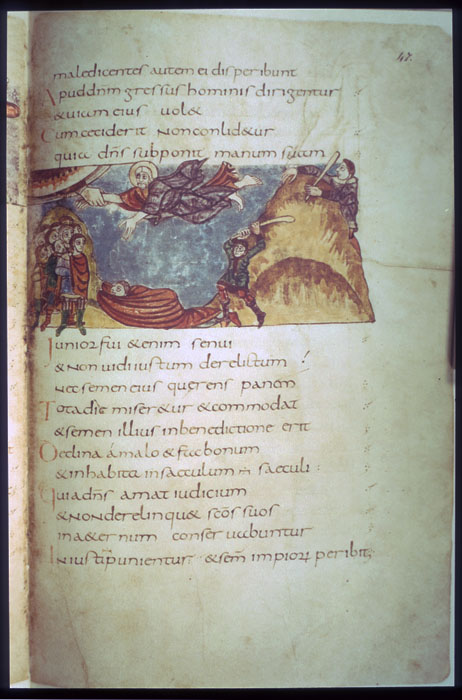 47.
maledicentes autem ei disperibunt
Apud dnm gressus hominis dirigentur
& uiam eius uol&
Cum ceciderit non conlid&ur
quia dns subponit manum suam
Iunior fui & enim senui
& non uidi iustum derelictum
nec semen eius querens panem
Tota die miser&ur & commodat
& semen illius in benedictione erit
Declina a malo & fac bonum
& inhabita in saeculum saeculi
Quia dns amat iudicium
& non derelinqu& scos suos
in a&ernum conseruabuntur
Iniusti punientur & sem impiorꝝ peribit;